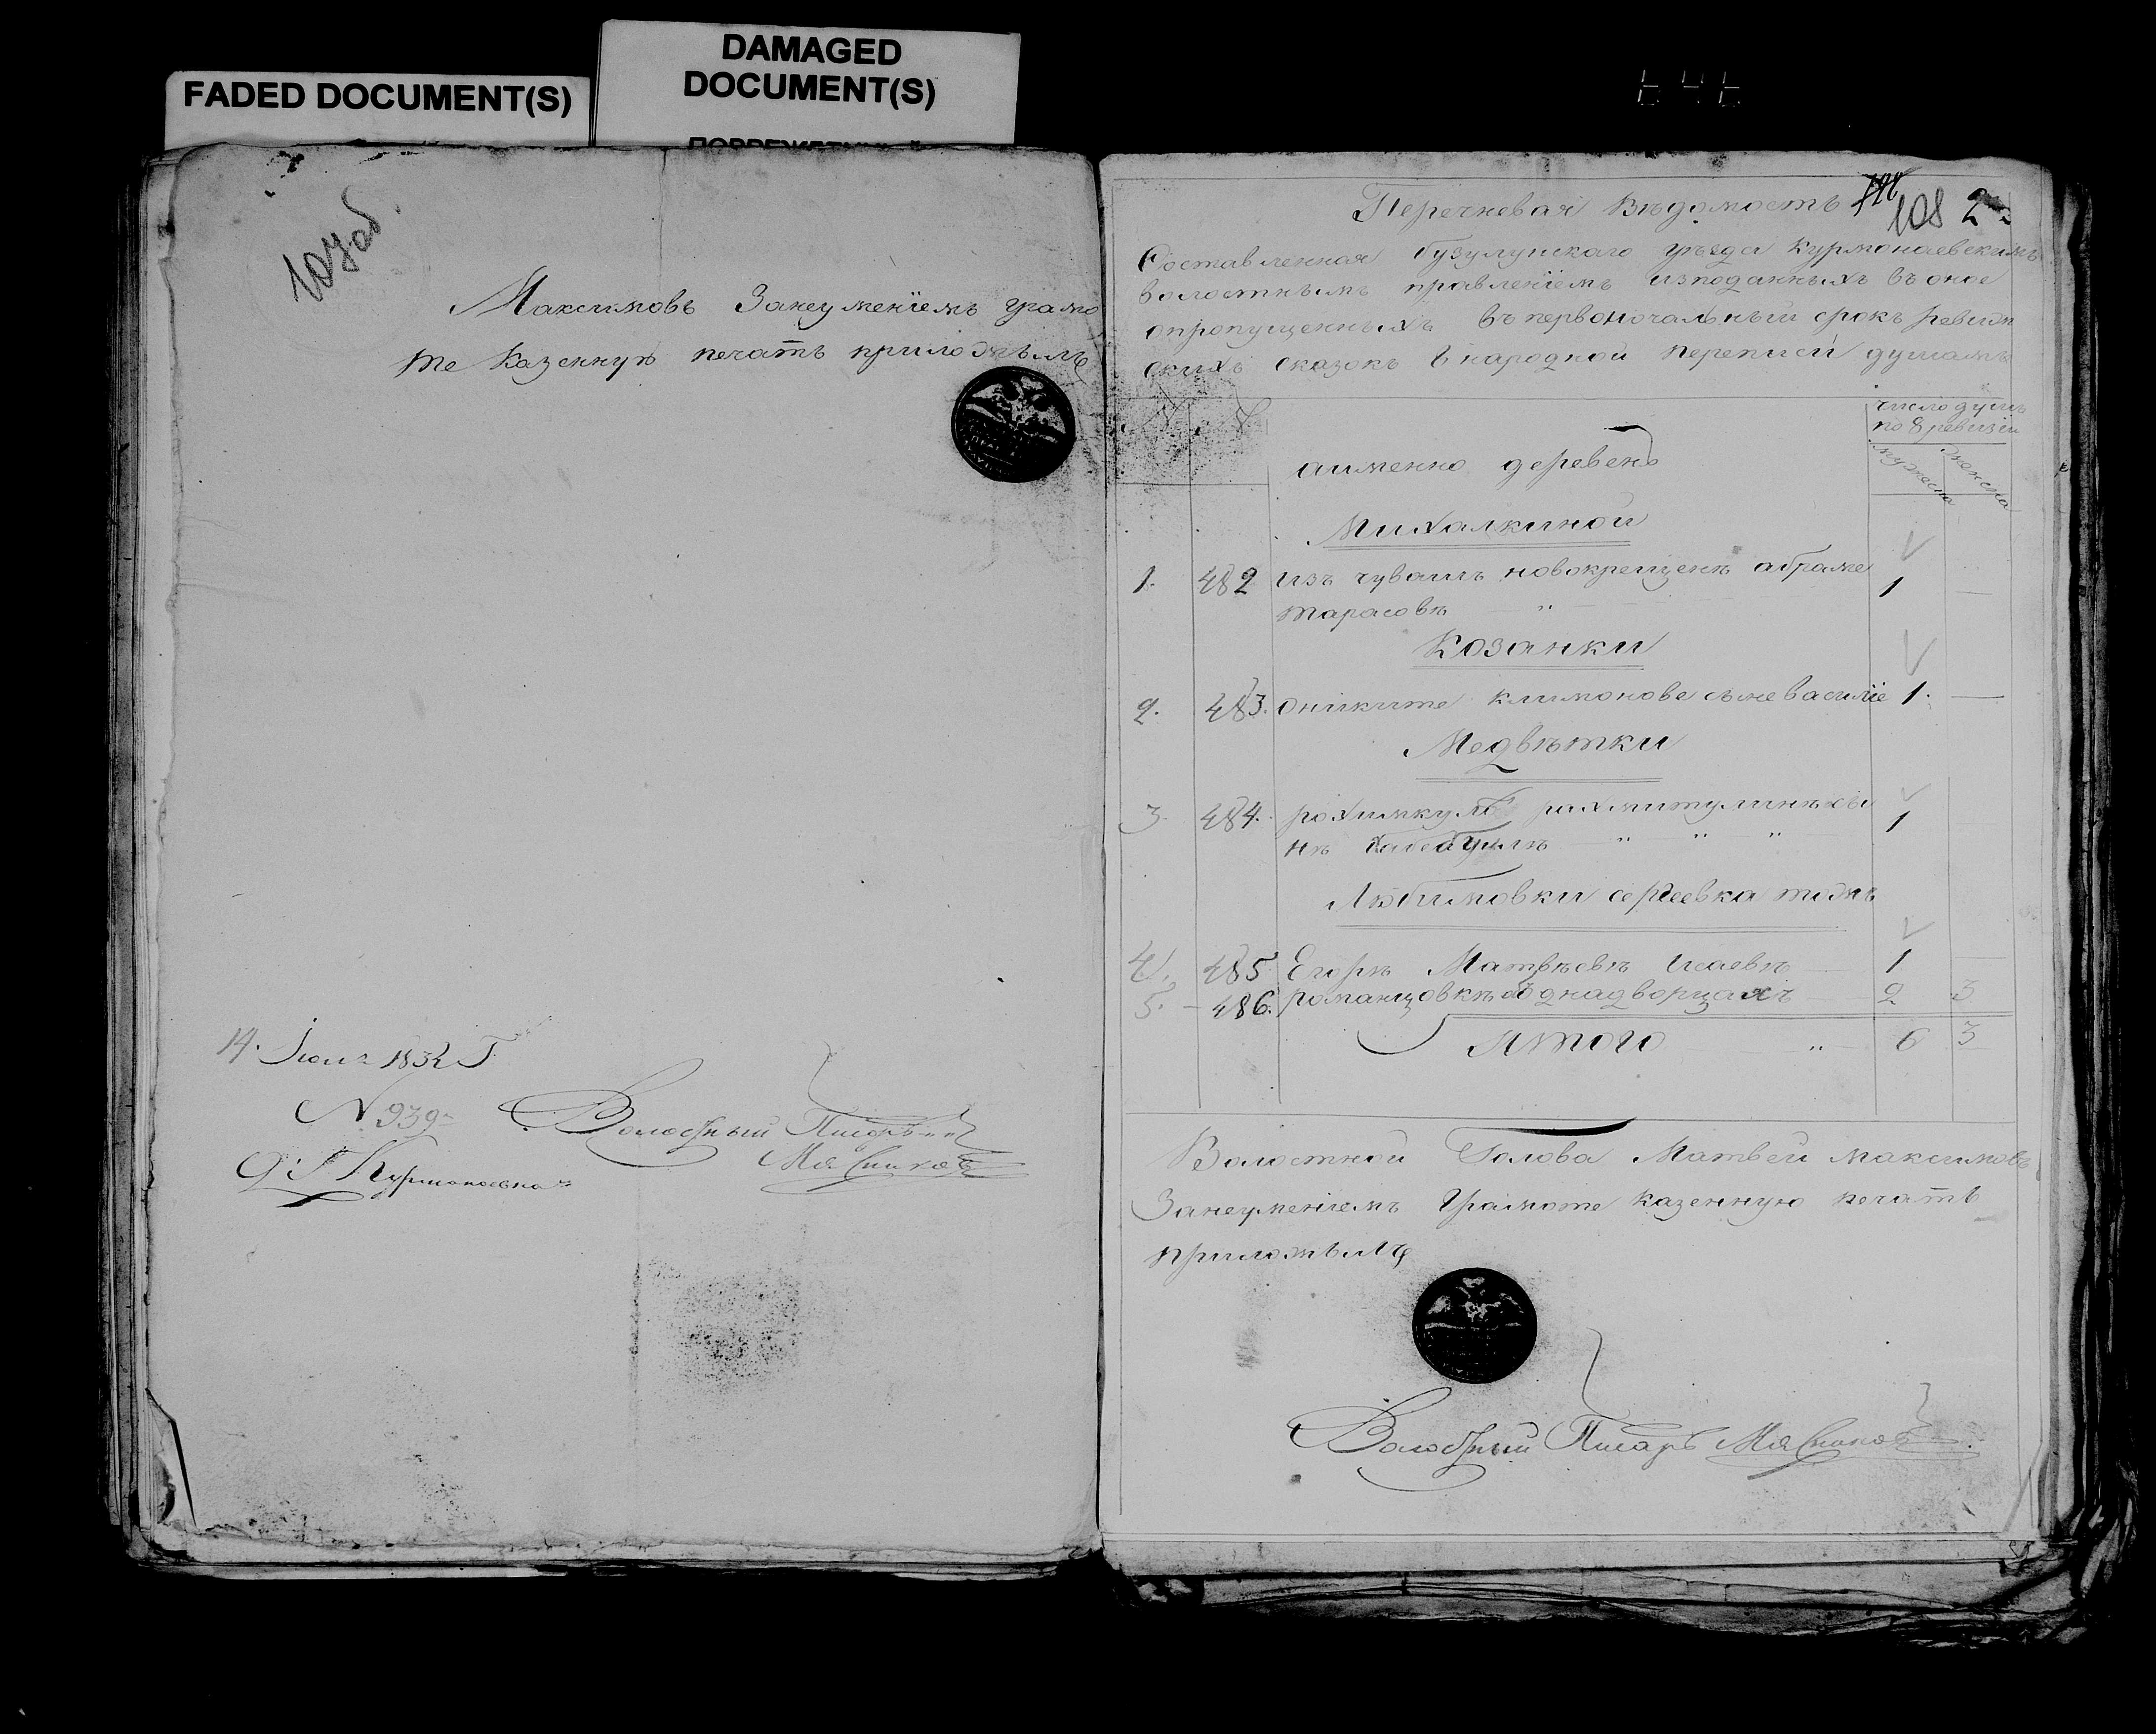 FADED DOCUMENT(S)
DAMAGED
DOCUMENT(S)
107об.
Максимовъ Занеумениемъ грамо
те Казенную печать приложылъ
14. Июня 1834 Г.
N 939
Д: Курманаевка
Волостный Писарь
Мясников
Перечневая Въдомость
108 2
Составленная бузулуцкаго уъзда Курмонаевскимъ
волостнымъ правлениемъ изподанныхъ въ оное
опропущенныхъ въ первоночальный срокъ ревиз
скихъ сказокъ внародной переписи душамъ
число душъ
по 8 ревизіи
аименно деревень
мужеска
женска
Михалкиной
1. 482 изъ чувашъ новокрещенъ абраме 1 —
тарасовъ "
Козанки
2. 483. ониките климонове сыне василіе 1. —
Медвътки
3. 484. рохимкулъ рахмитулинъ сы 1
нъ " " "
Любимовки сергеевка тожъ
4. 485 Егоръ Матвъевъ Исаевъ 1 —
5. 486. романцовкъ ободнадворцахъ 2 3
Итого " 6 3
Волостной Голова Матвей максимовъ
Занеумениемъ Грамоте казенную печать
приложылъ
Волостный Писарь Мясников